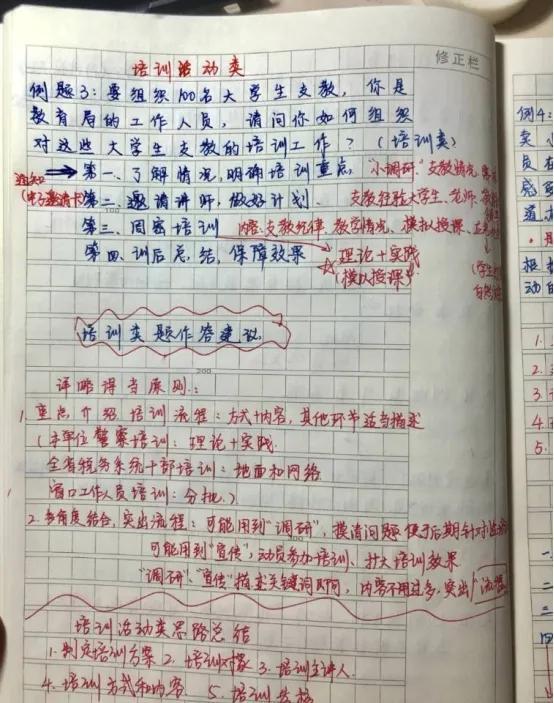 修正栏
培训活动类
例题3:要组织100名大学生支教,你是
教育局的工作人员,请问你如何组织
对这些大学生支教的培训工作?(培训类)
第一、了解情况,明确培训重点,"小调研"支教情况
通知
(电子邀请卡)
第二、邀请讲师,做好计划.支教经验大学生、老师
第三、周密培训 内容:支教纪律、教学情况、模拟授课
第四、训后总结,保障效果
理论+实践
(模拟授课)
(学生
200
培训类题作答建议
详略得当原则:
1.重点介绍培训流程:方式+内容,其他环节适当描述
(本单位警察培训:理论+实践
全省税务系统干部培训:地面和网络
窗口工作人员培训:分批.)
2.多角度结合,突出流程:可能用到"调研",摸清问题便于后期针对
可能用到"宣传",动员参加培训、扩大培训效果
"调研"、"宣传"描述关键词即可,内容不用过多,突出"流程"
培训活动类思路总结
1.制定培训方案 2.培训对象 3.培训主讲人.
4.培训方式和内容 5.培训
例4:
1.
2.
3.
4.
5.